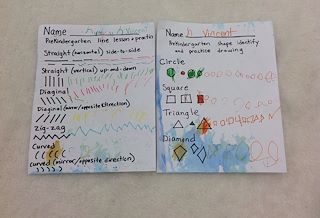 Name
PreKindergarten line lesson + practice
Straight (horizontal) side-to-side
Straight (vertical) up-and-down
Diaginal
Diaginal (mirror/opposite direction)
Zig-zag
Curved
Curved (mirror/opposite direction)
Name Vincent
PreKindergarten shape identify
and practice drawing
Circle
Square
Triangle
Diamond